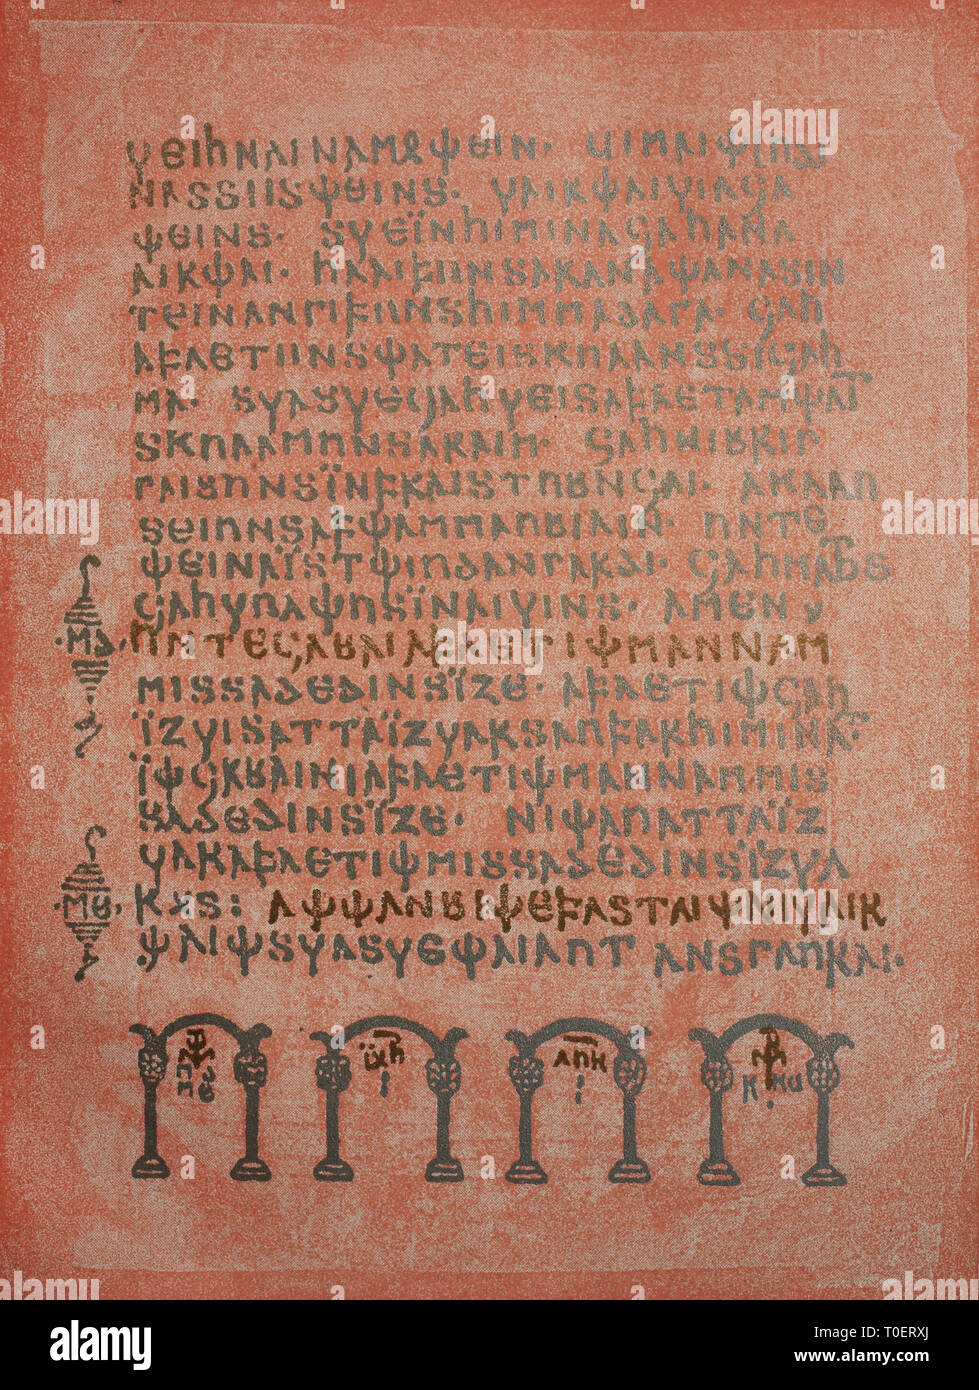 𐍅𐌴𐌹𐌷𐌽𐌰𐌹𐌽𐌰𐌼𐍉𐌸𐌴𐌹𐌽· 𐌵𐌹𐌼𐌰𐌹𐌸𐌹𐌿𐌳𐌹
𐌽𐌰𐍃𐍃𐌿𐍃𐌸𐌴𐌹𐌽𐍃· 𐍅𐌰𐌹𐍂𐌸𐌰𐌹𐍅𐌹𐌻𐌾𐌰
𐌸𐌴𐌹𐌽𐍃· 𐍃𐍅𐌴𐌹̈𐌽𐌷𐌹𐌼𐌹𐌽𐌰𐌾𐌰𐌷𐌰𐌽𐌰
𐌰𐌹𐍂𐌸𐌰𐌹· 𐌷𐌻𐌰𐌹𐍆𐌿𐌽𐍃𐌰𐍂𐌰𐌽𐌰𐌸𐌰𐌽𐌰𐍃𐌹𐌽
𐍄𐌴𐌹𐌽𐌰𐌽𐌲𐌹𐍆𐌿𐌽𐍃𐌷𐌹𐌼𐌼𐌰𐌳𐌰𐌲𐌰· 𐌾𐌰𐌷
𐌰𐍆𐌻𐌴𐍄𐌿𐌽𐍃𐌸𐌰𐍄𐌴𐌹𐍃𐌺𐌿𐌻𐌰𐌽𐍃𐍃𐌹𐌾𐌰𐌹
𐌼𐌰· 𐍃𐍅𐌰𐍃𐍅𐌴𐌾𐌰𐌷𐍅𐌴𐌹𐍃𐌰𐍆𐌻𐌴𐍄𐌰𐌼𐌸𐌰𐌹𐌼
𐍃𐌺𐌿𐌻𐌰𐌼𐌿𐌽𐍃𐌰𐍂𐌰𐌹𐌼· 𐌾𐌰𐌷𐌽𐌹𐌱𐍂𐌹𐌲
𐌲𐌰𐌹𐍃𐌿𐌽𐍃𐌹̈𐌽𐍆𐍂𐌰𐌹𐍃𐍄𐌿𐌱𐌽𐌾𐌰𐌹· 𐌰𐌺𐌻𐌰𐌿
𐍃𐌴𐌹𐌿𐌽𐍃𐌰𐍆𐌸𐌰𐌼𐌼𐌰𐌿𐌱𐌹𐌻𐌹𐌽· 𐌿𐌽𐍄𐌴
𐌸𐌴𐌹𐌽𐌰𐌹̈𐍃𐍄𐌸𐌹𐌿𐌳𐌰𐌽𐌲𐌰𐍂𐌳𐌹· 𐌾𐌰𐌷𐌼𐌰𐌷𐍄𐍃
𐌾𐌰𐌷𐍅𐌿𐌻𐌸𐌿𐍃𐌹̈𐌽𐌰𐌹𐍅𐌹𐌽𐍃· 𐌰𐌼𐌴𐌽
·𐌼𐌳· 𐌿𐌽𐍄𐌴𐌾𐌰𐌱𐌰𐌹𐌰𐍆𐌻𐌴𐍄𐌹𐌸𐌼𐌰𐌽𐌽𐌰𐌼
𐌼𐌹𐍃𐍃𐌰𐌳𐌴𐌳𐌹𐌽𐍃𐌹̈𐌶𐌴· 𐌰𐍆𐌻𐌴𐍄𐌹𐌸𐌾𐌰𐌷
𐌹̈𐌶𐍅𐌹𐍃𐌰𐍄𐍄𐌰𐌹̈𐌶𐍅𐌰𐍂𐍃𐌰𐌿𐍆𐌰𐍂𐌷𐌹𐌼𐌹𐌽𐌰𐌼·
𐌹̈𐌸𐌾𐌰𐌱𐌰𐌹𐌽𐌹𐌰𐍆𐌻𐌴𐍄𐌹𐌸𐌼𐌰𐌽𐌽𐌰𐌼𐌼𐌹𐍃
𐍃𐌰𐌳𐌴𐌳𐌹𐌽𐍃𐌹̈𐌶𐌴· 𐌽𐌹𐌸𐌰𐌿𐌰𐍄𐍄𐌰𐌹̈𐌶
𐍅𐌰𐍂𐌰𐍆𐌻𐌴𐍄𐌹𐌸𐌼𐌹𐍃𐍃𐌰𐌳𐌴𐌳𐌹𐌽𐍃𐌹̈𐌶𐍅𐌰
·𐌼𐌴· 𐍂𐍉𐍃: 𐌰𐌸𐌸𐌰𐌽𐌱𐌹𐌸𐌴𐍆𐌰𐍃𐍄𐌰𐌹𐌸𐌽𐌹𐍅𐌰𐌹𐍂
𐌸𐌰𐌹𐌸𐍃𐍅𐌰𐍃𐍅𐌴𐌸𐌰𐌹𐌻𐌹𐌿𐍄𐌰𐌽𐍃𐌲𐌰𐌿𐍂𐌰𐌹·
𐌻𐌿𐌺